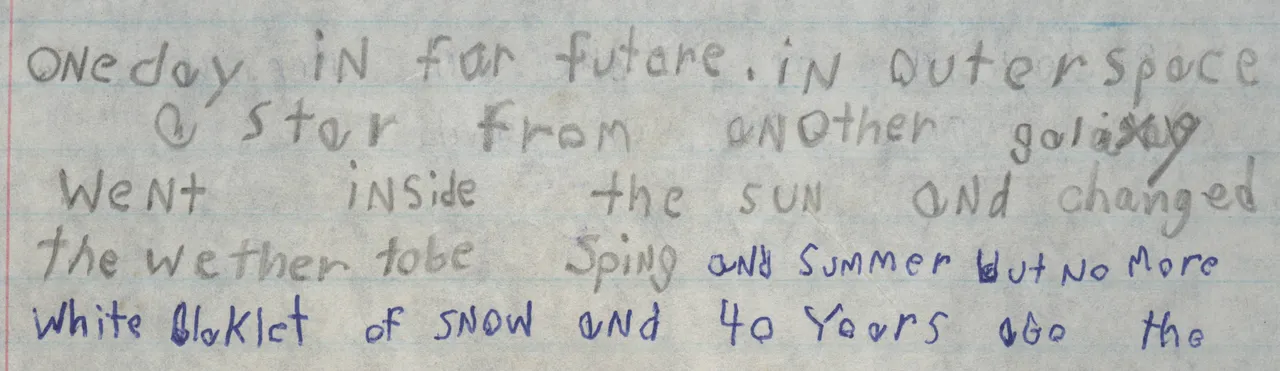 ONe day iN far future. iN outer space
a star from aNother galaxy
weNt iNside the suN aNd changed
the wether tobe Sping aNd summer but No more
white Blaklet of sNow aNd 40 Years ago the